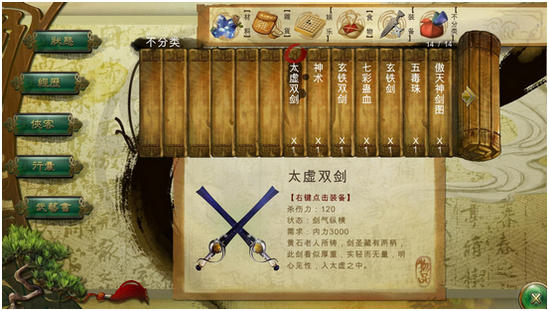 狀態
經歷
俠客
行囊
武藝會
材料
雜貨
娱乐
食物
装备
不分类
14 / 14
不分类
太虚双剑 X 1
神术 X 1
玄铁双剑 X 1
七彩蛊血 X 1
玄铁剑 X 1
五毒珠 X 1
傲天神剑图 X 1
太虚双剑
【右键点击装备】
杀伤力：120
状态：剑气纵横
需求：内力3000
黄石老人所铸，剑圣藏有两柄，
此剑看似厚重，实轻而无量，明
心见性，入太虚之中。
物品